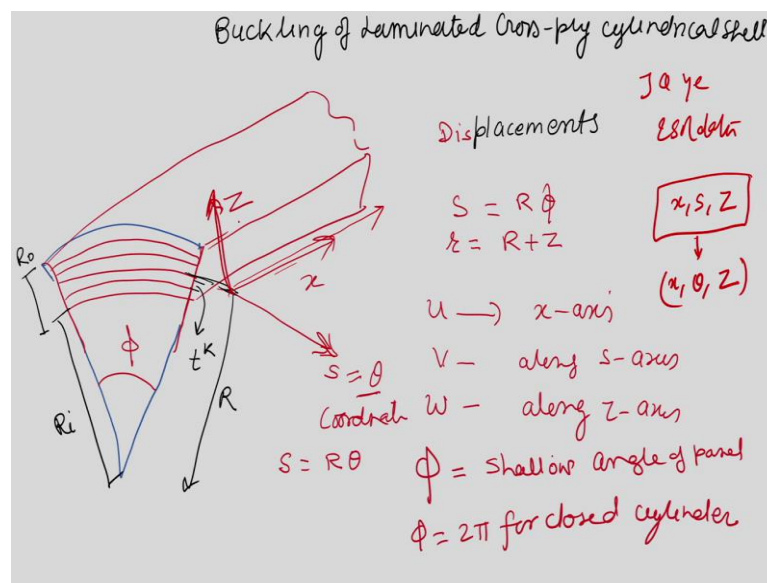 Buckling of Laminated Cross-ply cylindrical shell
Displacements
S = Rϕ
r = R+Z
x, S, Z
↓
(x, θ, Z)
Z
Ro
x
ϕ
t^k
R
Ri
S = θ
Coordinate
S = Rθ
U → x-axis
V – along s-axis
W – along z-axis
ϕ = Shallow angle of panel
ϕ = 2π for closed cylinder